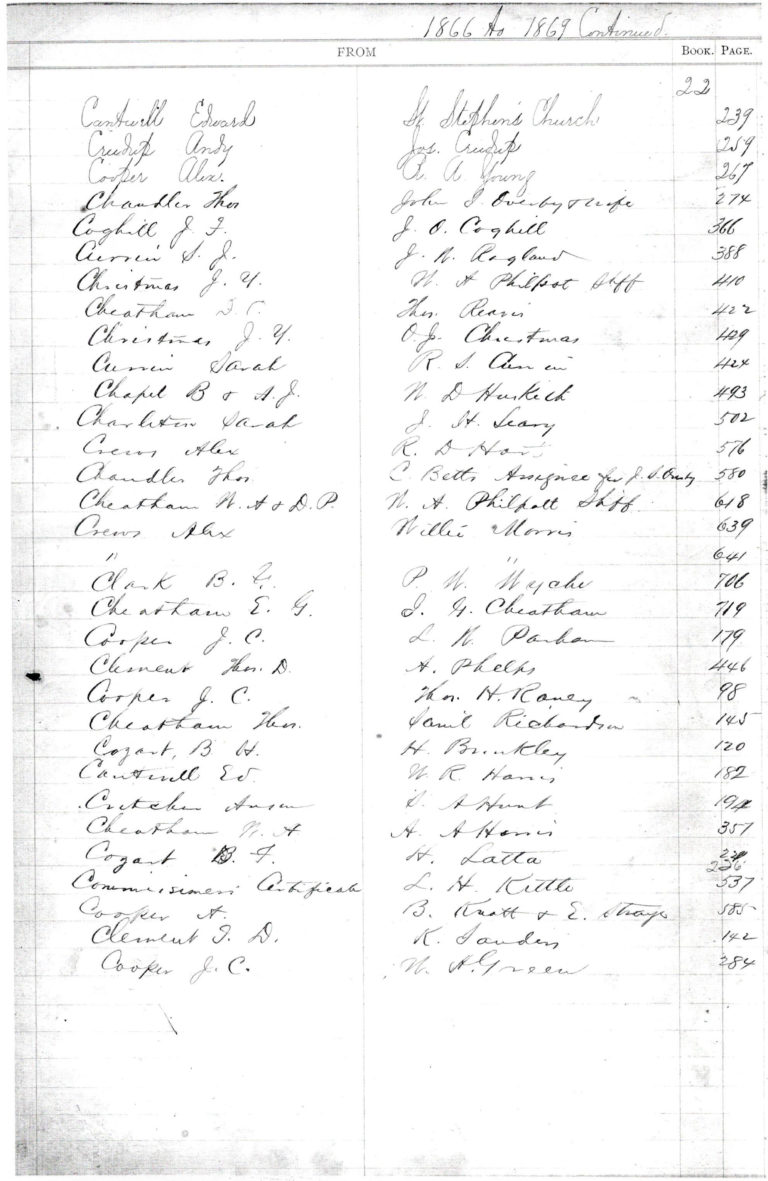 1866 to 1869 Continued.
FROM BOOK. PAGE.
22
Cantwell Edward St Stephen's Church 239
Crudup Andy Jos. Crudup 259
Cooper Alex. R A Young 267
Chandler Thos John S Overby & wife 274
Coghill J. F. J. O. Coghill 366
Currin S. J. J. N. Ragland 388
Christmas J. Y. W. A Philpot Shff 410
Cheatham Thos. Reavis 422
Christmas J. Y. O. J. Christmas 429
Currin Sarah R. S. Currin 424
Chapel B & A. J. W D Huskith 493
Charleton Sarah J. H. Seary 502
Crews Alex R. D 576
Chandler Thos C. Betts Assignee for J. S. 580
Cheatham W. A & D. P. W. A. Philpott Shff 618
Crews Alex Willie Morris 639
" " 641
Clark B. P. W. Wyche 706
Cheatham E. G. I. G. Cheatham 719
Cooper J. C. L. W. Parham 179
Clement Thos. D. A. Phelps 446
Cooper J. C. Thos. H. Raney 98
Cheatham Thos. Saml Richardson 145
Cozart, B H. H. Brinkley 120
Cantwell Ed. W R Harris 182
Critcher Anson S. A Hunt 194
Cheatham W. A A. A Harris 357
Cozart B. F. H. Latta
236
Commissioners Certificate L. H. Kittle 537
Cooper A. B. Knott & E. 585
Clement T. D. K. Sanders 142
Cooper J. C. W. H. Green 284